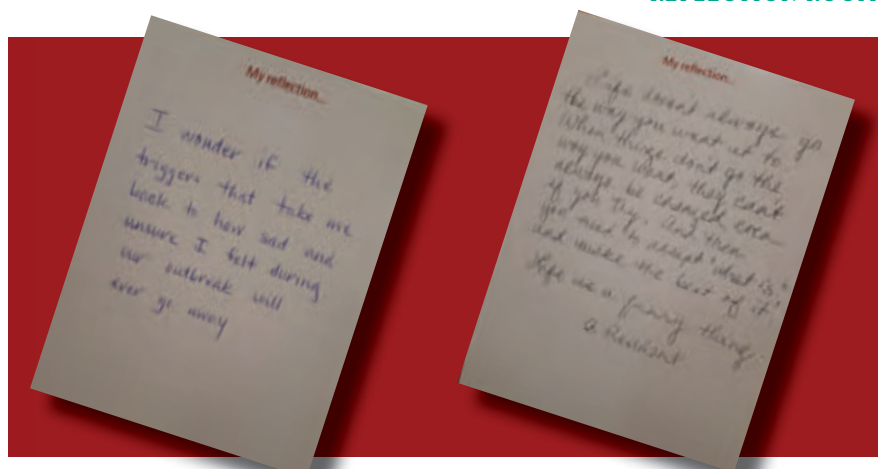 My reflection...
I wonder if the
triggers that take me
back to how sad and
unsure I felt during
our outbreak will
ever go away
My reflection...
Life doesn't always go
the way you want it to
When things don't go the
way you want, they can't
always be changed even
if you try. And then
you need to accept "what is"
and make the best of it!
Life is a funny thing.
A Resident